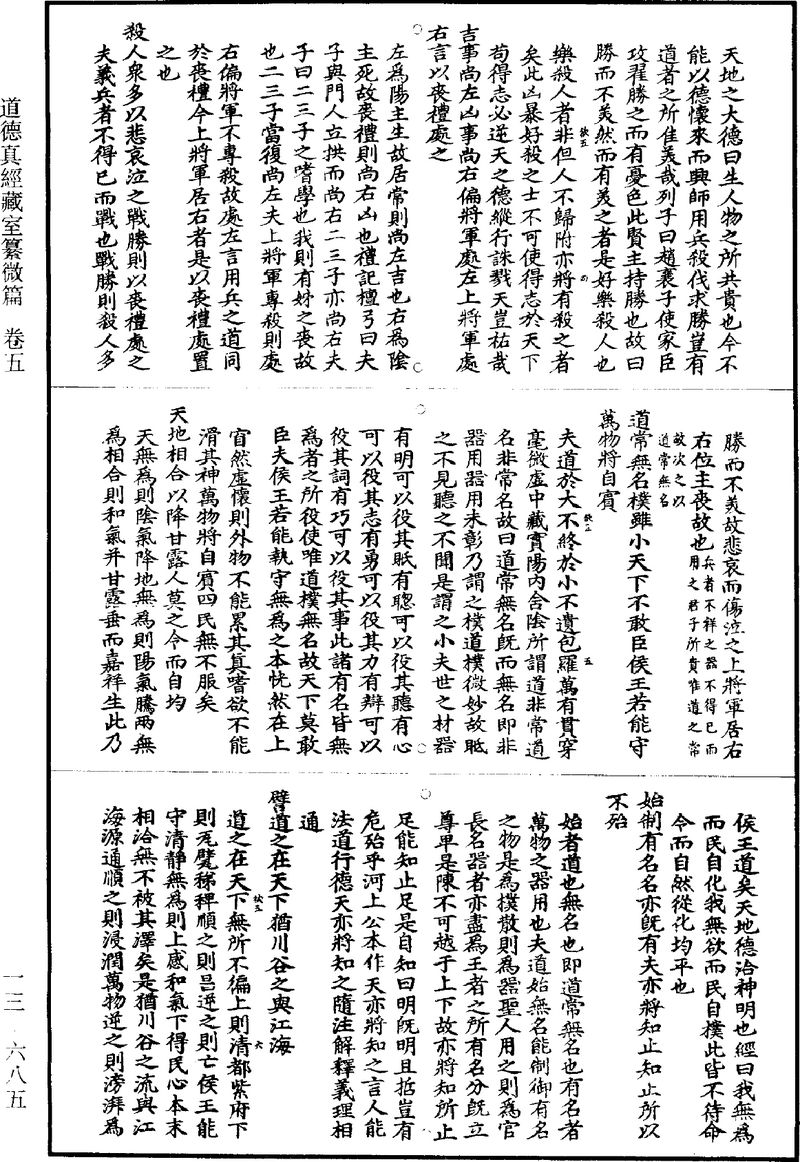 天地之大德曰生人物之所共貴也今不
能以德懷來而興師用兵殺伐求勝豈有
道者之所佳美哉列子曰趙襄子使家臣
攻翟勝之而有憂色此賢主持勝也故曰
勝而不美然而有美之者是好樂殺人也
樂殺人者非但人不歸附亦將有殺之者
矣此凶暴好殺之士不可使得志於天下
苟得志必逆天之德縱行誅戮天豈祐哉
吉事尚左凶事尚右偏將軍處左上將軍處
右言以喪禮處之
左為陽主生故居常則尚左吉也右為陰
主死故喪禮則尚右凶也禮記檀弓曰夫
子與門人立拱而尚右二三子亦尚右夫
子曰二三子之嗜學也我則有姊之喪故
也二三子當復尚左夫上將軍專殺則處
右偏將軍不專殺故處左言用兵之道同
於喪禮今上將軍居右者是以喪禮處置
之也
殺人衆多以悲哀泣之戰勝則以喪禮處之
夫義兵者不得已而戰也戰勝則殺人多
勝而不美故悲哀而傷泣之上將軍居右
右位主喪故也兵者不祥之器不得已而
用之君子所貴唯道之常
故次之以
道常無名
道常無名樸雖小天下不敢臣侯王若能守
萬物將自賓
夫道於大不終於小不遺包羅萬有貫穿
毫微虛中藏實陽內含陰所謂道非常道
名非常名故曰道常無名既而無名即非
器用器用未彰乃謂之樸道樸微妙故眂
之不見聽之不聞是謂之小夫世之材器
有明可以役其眂有聰可以役其聽有心
可以役其志有勇可以役其力有辯可以
役其詞有巧可以役其事此諸有名皆無
為者之所役使唯道樸無名故天下莫敢
臣夫侯王若能執守無為之本恍然在上
窅然虛懷則外物不能累其真嗜欲不能
滑其神萬物將自賓四民無不服矣
天地相合以降甘露人莫之令而自均
天無為則陰氣降地無為則陽氣騰兩無
為相合則和氣并甘露垂而嘉祥生此乃
侯王道矣天地德洽神明也經曰我無為
而民自化我無欲而民自樸此皆不待命
令而自然從化均平也
始制有名名亦既有夫亦將知止知止所以
不殆
始者道也無名也即道常無名也有名者
萬物之器用也夫道始無名能制御有名
之物是為樸散則為器聖人用之則為官
長名器者亦盡為王者之所有名分既立
尊卑是陳不可越于上下故亦將知所止
足能知止足是自知曰明既明且哲豈有
危殆乎河上公本作天亦將知之言人能
法道行德天亦將知之隨注解釋義理相
通
譬道之在天下猶川谷之與江海
道之在天下無所不徧上則清都紫府下
則瓦甓稊稗順之則吕逆之則亡侯王能
守清靜無為則上感和氣下得民心本末
相洽無不被其澤矣是猶川谷之流與江
海源通順之則浸潤萬物逆之則滂湃為
道德真經藏室纂微篇 卷五
一三·六八五